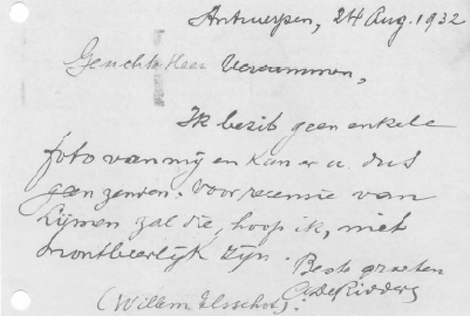 Antwerpen, 24 Aug. 1932
Geachte Heer Vercammen,
Ik bezit geen enkele
foto van mij en kan er u dus
geen zenden. Voor recensie van
Lijmen zal die, hoop ik, niet
montbeerlijk zijn.
Beste groeten
A De Ridder
(Willem Elsschot).